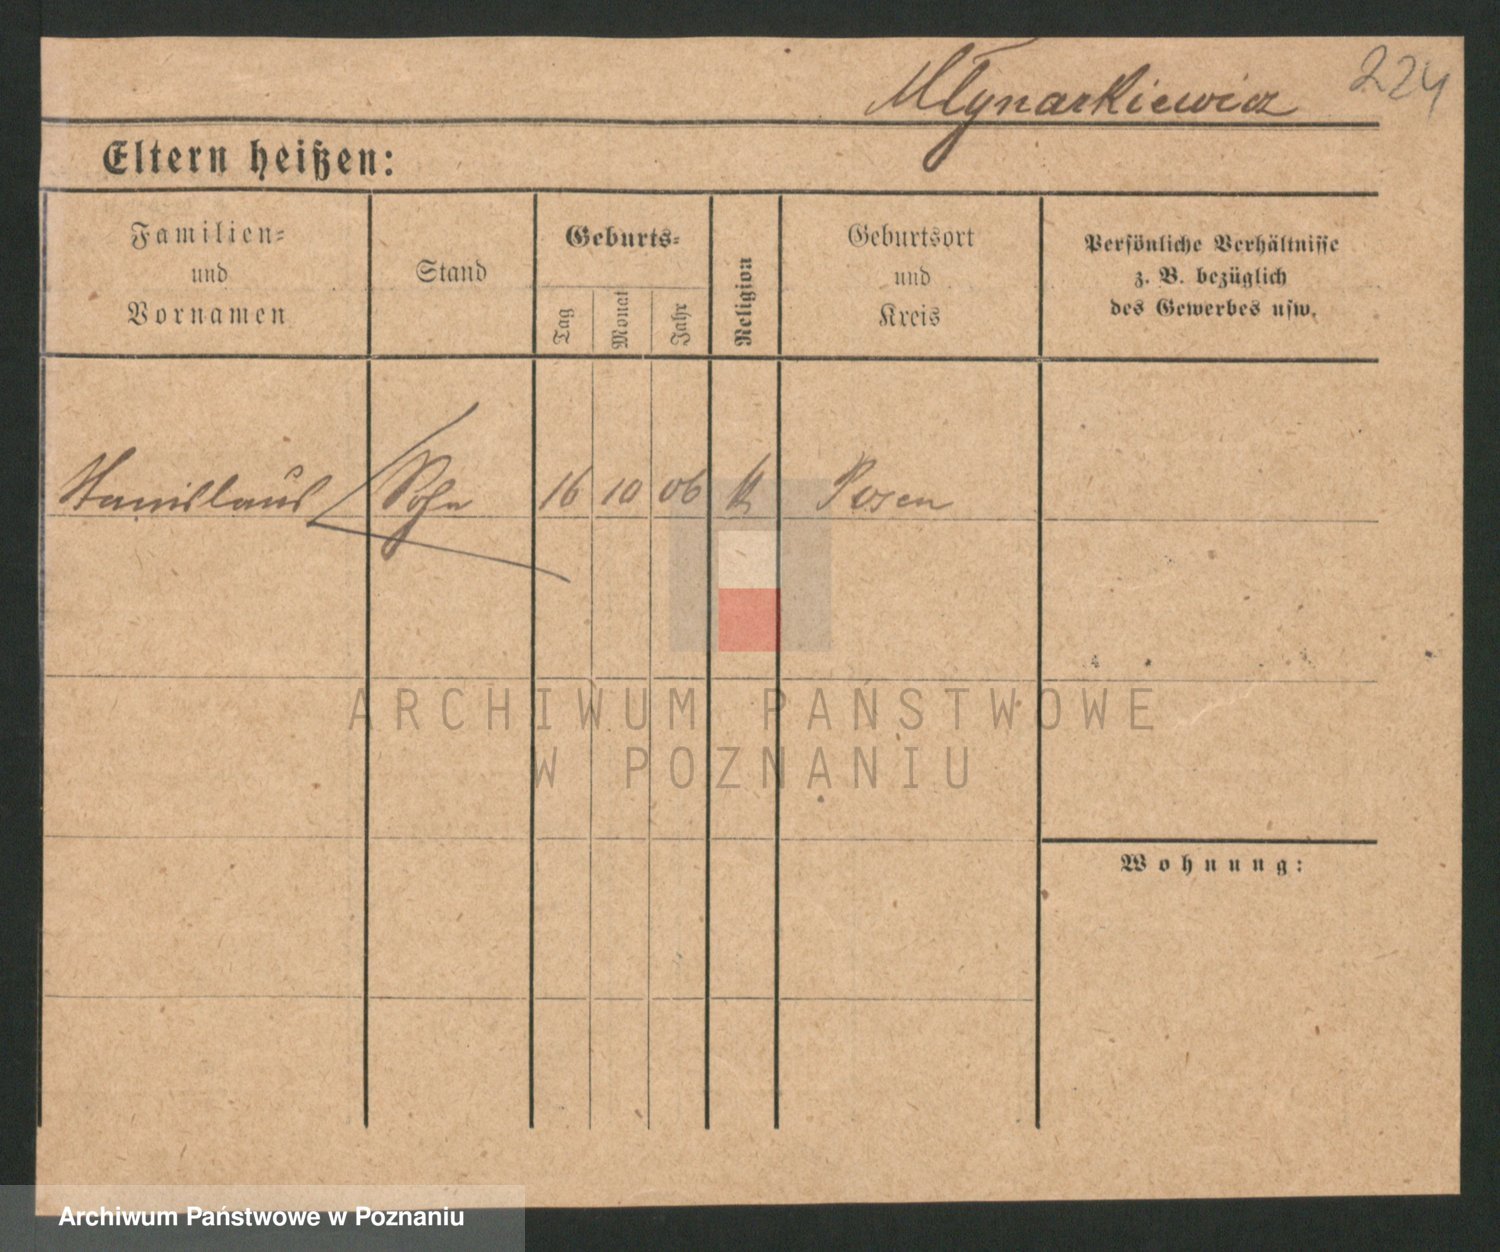 Młynarkiewicz 224
Eltern heißen:
Familien=
und
Vornamen
Stand
Geburts=
Tag
Monat
Jahr
Religion
Geburtsort
und
Kreis
Persönliche Verhältnisse
z. B. bezüglich
des Gewerbes usw.
Stanislaus Sohn 16 10 06 k Posen
ARCHIWUM PAŃSTWOWE
W POZNANIU
Wohnung:
Archiwum Państwowe w Poznaniu